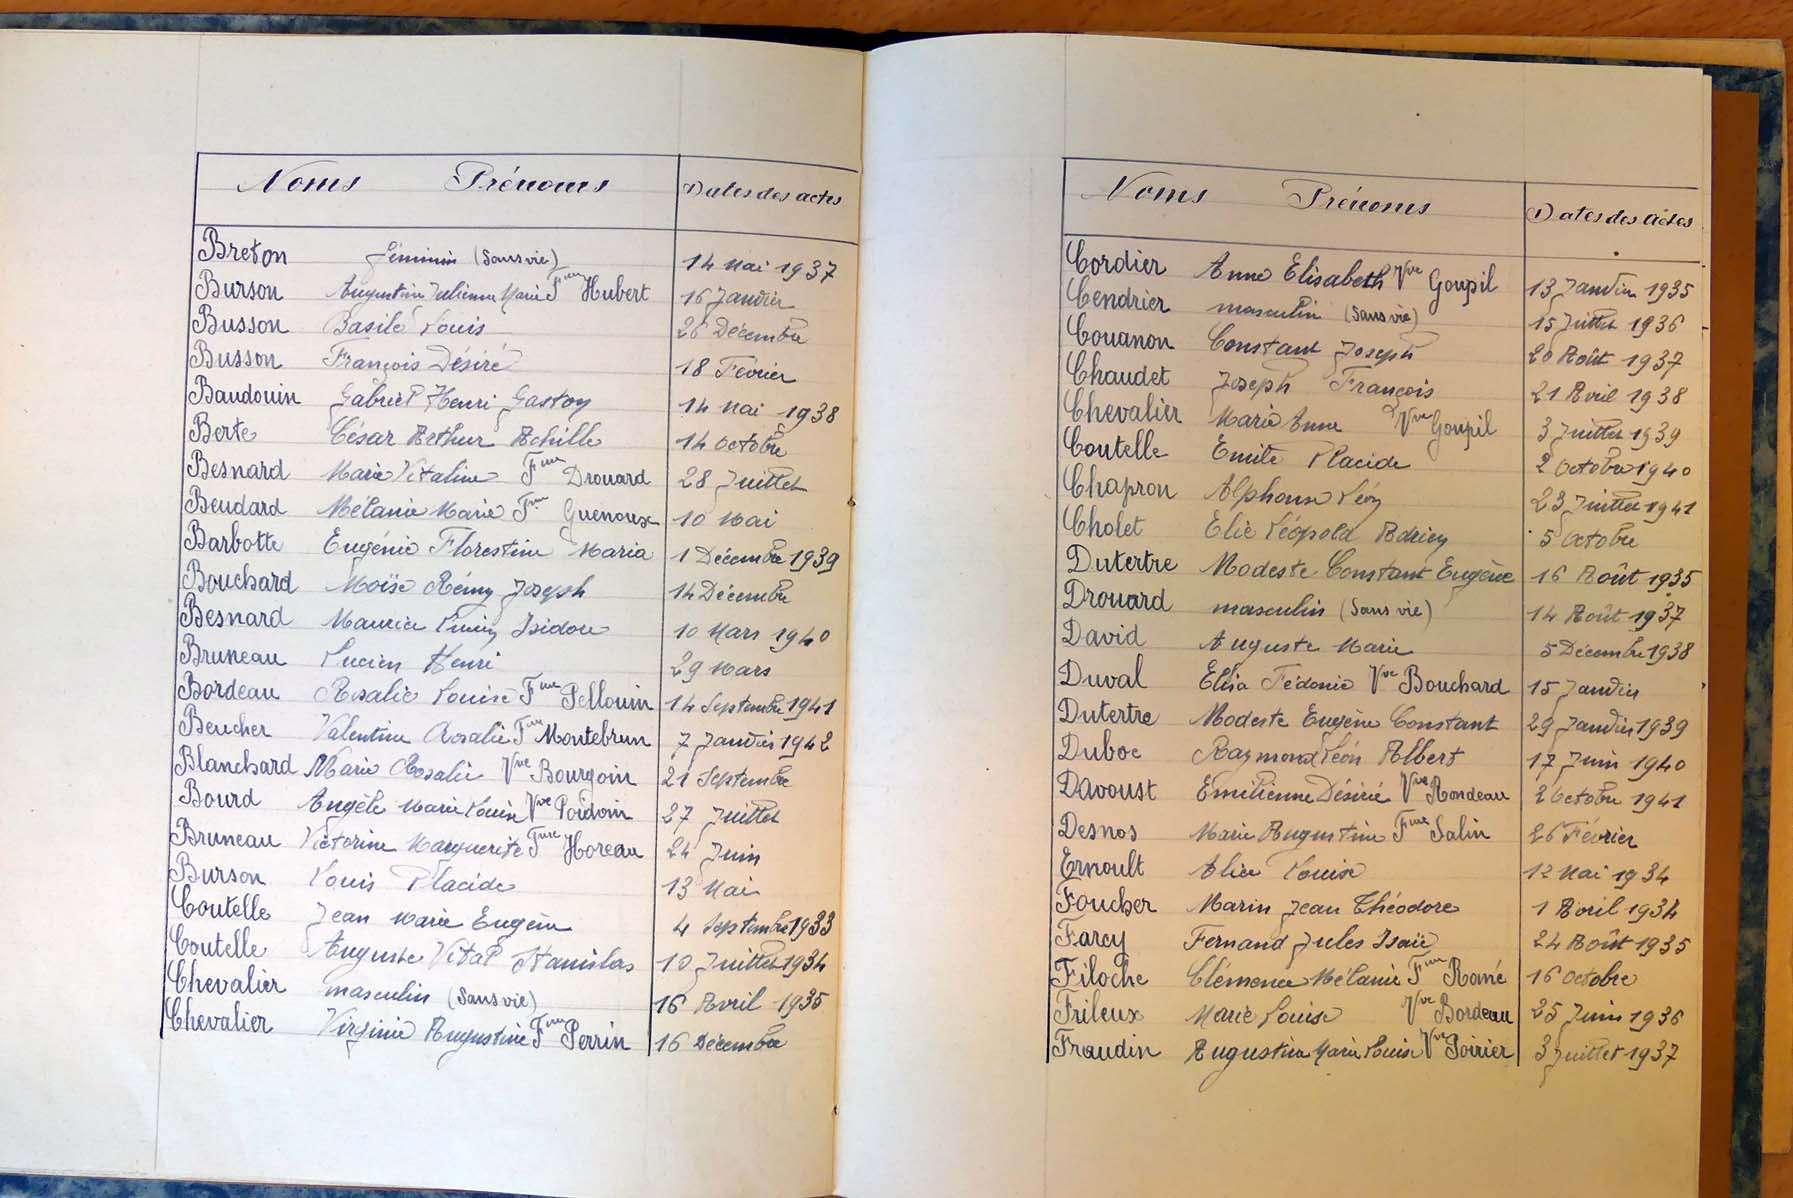 Noms Prénoms Dates des actes
Breton féminin (Sans vie) 14 Mai 1937
Burson Augustine Julienne Marie Fme Hubert 16 Janvier
Busson Basile Louis 26 Décembre
Busson François Désiré 18 Février
Baudouin Gabriel Henri Gaston 14 Mai 1938
Berte César Arthur Achille 14 Octobre
Besnard Marie Vitaline Fme Drouard 28 Juillet
Beudard Mélanie Marie Fe Guenoux 10 Mai
Barbotte Eugénie Florestine Maria 1 Décembre 1939
Bouchard Moïse Rémy Joseph 14 Décembre
Besnard Maurice Isidore 10 Mars 1940
Bruneau Lucien Henri 29 Mars
Bordeau Rosalie Louise Fme Pellouin 14 Septembre 1941
Beucher Valentine Rosalie Fme Montebrun 7 Janvier 1942
Blanchard Marie Rosalie Vve Bourgoin 21 Septembre
Bourd Angèle Marie Louise Vve Poidvin 27 Juillet
Bruneau Victorine Marguerite Fme Horeau 24 Juin
Burson Louis Placide 13 Mai
Coutelle Jean Marie Eugène 4 Septembre 1933
Coutelle Auguste Vital Stanislas 10 Juillet 1934
Chevalier masculin (Sans vie) 16 Avril 1935
Chevalier Virginie Augustine Fme Perrin 16 Décembre
Noms Prénoms Dates des actes
Cordier Anne Elisabeth Vve Goupil 13 Janvier 1935
Cendrier masculin (Sans vie) 15 Juillet 1936
Couanon Constant Joseph 20 Août 1937
Chaudet Joseph François 21 Avril 1938
Chevalier Marie Anne Vve Goupil 3 Juillet 1939
Coutelle Emile Placide 2 Octobre 1940
Chapron Alphonse Léon 23 Juillet 1941
Cholet Elie Léopold Adrien 5 Octobre
Dutertre Modeste Constant Eugène 16 Août 1935
Drouard masculin (Sans vie) 14 Août 1937
David Auguste Marie 5 Décembre 1938
Duval Elisa Fédonie Vve Bouchard 15 Janvier
Dutertre Modeste Eugène Constant 29 Janvier 1939
Duboc Raymond Léon Albert 17 Juin 1940
Davoust Emilienne Désirée Vve Rondeau 2 Octobre 1941
Desnos Marie Augustine Fme Salin 26 Février
Ernoult Alice Louise 12 Mai 1934
Foucher Marin Jean Théodore 1 Avril 1934
Farcy Fernand Jules Isaïe 24 Août 1935
Filoche Clémence Mélanie Fme Ramé 16 Octobre
Frileux Marie Louise Vve Bordeau 25 Juin 1936
Fraudin Augustine Marie Louise Vve Poirier 3 Juillet 1937